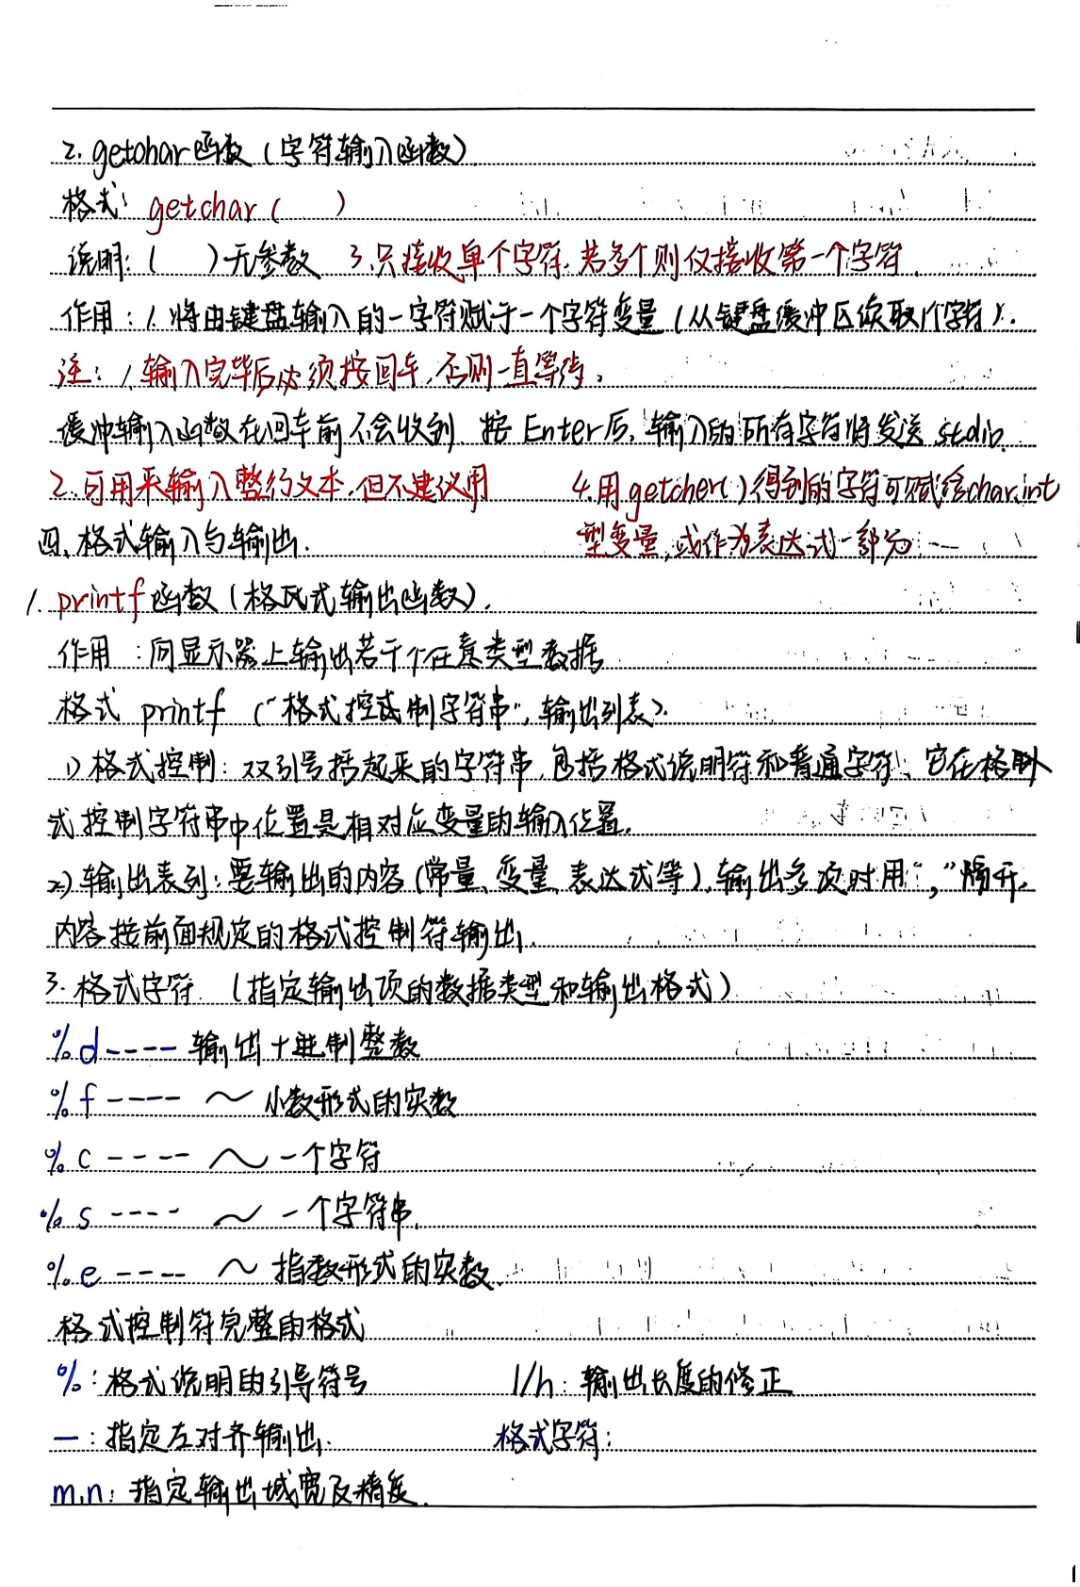 2. getchar函数（字符输入函数）
格式: getchar (     )
说明: (     ) 无参数 3.只接收单个字符,若多个则仅接收第一个字符.
作用：1.将由键盘输入的一字符赋于一个字符变量（从键盘缓冲区读取1个字符）.
注：1.输入完毕后必须按回车,否则一直等待。
缓冲输入函数在回车前不会收到 按Enter后,输入的所有字符将发送 stdio.
2.可用来输入整行文本,但不建议用 4.用getcher( )得到的字符可赋给char.int
型变量,或作为表达式一部分
四、格式输入与输出.
1. printf函数（格式输出函数）.
作用：向显示器上输出若干个任意类型数据
格式 printf （“格式控制字符串”,输出列表）.
1) 格式控制：双引号括起来的字符串,包括格式说明符和普通字符、它在格
式控制字符串中位置是相对应变量的输入位置.
2) 输出表列：要输出的内容（常量、变量、表达式等）,输出多项时用“，”隔开.
内容按前面规定的格式控制符输出.
3. 格式字符.（指定输出项的数据类型和输出格式）
%d ---- 输出十进制整数
%f ---- ～ 小数形式的实数
%c ---- ～ 一个字符
%s ---- ～ 一个字符串.
%e ---- ～ 指数形式的实数.
格式控制符完整的格式
%：格式说明的引导符号 l/h：输出长度的修正
—：指定左对齐输出. 格式字符：
m.n：指定输出域宽及精度.